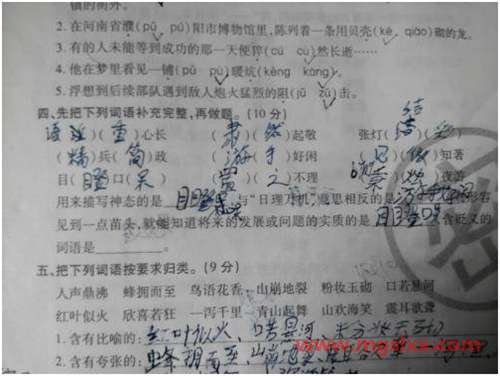 2.在河南省濮(pǔ pú)阳市博物馆里,陈列着一条用贝壳(ké qiào)砌的龙。
3.有的人未能等到成功的那一天便猝(cù cū)然长逝……
4.他在梦里看见一铺(pū pù)暖炕(kèng kàng)。
5.浮想到后续部队遇到敌人炮火猛烈的阻(jū zǔ)击。
四.先把下列词语补充完整,再做题。(10分)
语(重)心长 (肃)(然)起敬 张灯(结)(彩)
(精)兵(简)政 (游)(手)好闲 (见)(微)知著
目(瞪)口(呆) (置)(之)不理 夜游
用来描写神态的是 目瞪口呆 与“日理万机”意思相反的是 游手好闲 形容
见到一点苗头,就能知道将来的发展或问题的实质的是 含贬义的
词语是 。
五.把下列词语按要求归类。(9分)
人声鼎沸 蜂拥而至 鸟语花香 山崩地裂 粉妆玉砌 口若悬河
红叶似火 欣喜若狂 一泻千里 青山起舞 山欢海笑 震耳欲聋
1.含有比喻的: 红叶似火、口若悬河、
2.含有夸张的: 蜂拥而至、山崩地裂
www.mgshxx.com